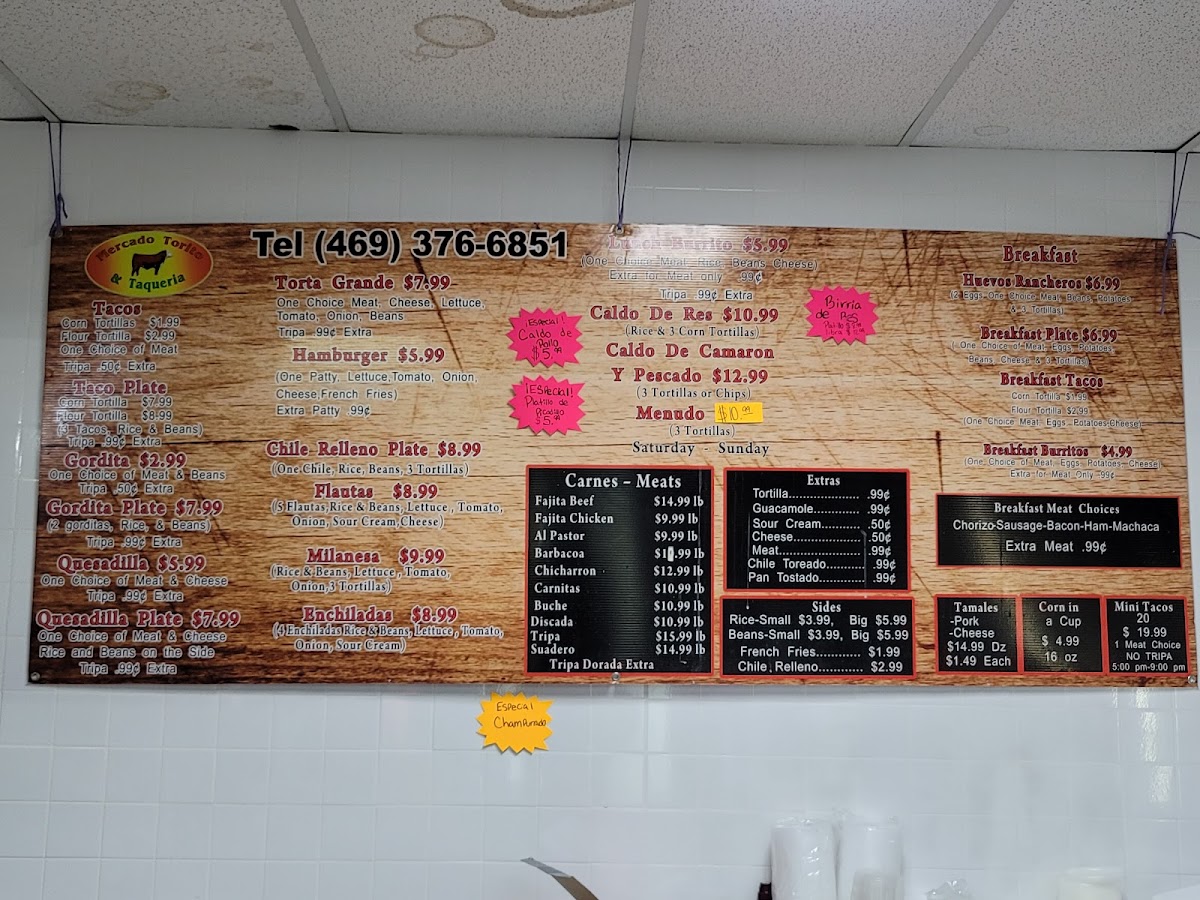 Mercado Torito
& Taqueria
Tel (469) 376-6851
Tacos
Corn Tortillas $1.99
Flour Tortilla $2.99
One Choice of Meat
Tripa .50¢ Extra
Taco Plate
Corn Tortilla $7.99
Flour Tortilla $8.99
(3 Tacos, Rice & Beans)
Tripa .99¢ Extra
Gordita $2.99
One Choice of Meat & Beans
Tripa .50¢ Extra
Gordita Plate $7.99
(2 gorditas, Rice, & Beans)
Tripa .99¢ Extra
Quesadilla $5.99
One Choice of Meat & Cheese
Tripa .99¢ Extra
Quesadilla Plate $7.99
One Choice of Meat & Cheese
Rice and Beans on the Side
Tripa .99¢ Extra
Torta Grande $7.99
One Choice Meat, Cheese, Lettuce,
Tomato, Onion, Beans
Tripa .99¢ Extra
Hamburger $5.99
(One Patty, Lettuce,Tomato, Onion,
Cheese,French Fries)
Extra Patty .99¢
Chile Relleno Plate $8.99
(One Chile, Rice, Beans, 3 Tortillas)
Flautas $8.99
(5 Flautas,Rice & Beans, Lettuce , Tomato,
Onion, Sour Cream,Cheese)
Milanesa $9.99
(Rice & Beans, Lettuce , Tomato,
Onion,3 Tortillas)
Enchiladas $8.99
(4 Enchiladas Rice & Beans, Lettuce , Tomato,
Onion, Sour Cream)
¡Especial!
Caldo de
Pollo
$5.99
¡Especial!
Platillo de
Picadillo
$5.99
Lunch Burrito $5.99
(One Choice Meat, Rice, Beans Cheese)
Extra for Meat only .99¢
Tripa .99¢ Extra
Caldo De Res $10.99
(Rice & 3 Corn Tortillas)
Caldo De Camaron
Y Pescado $12.99
(3 Tortillas or Chips)
Menudo $10.99
(3 Tortillas)
Saturday - Sunday
Birria
de Res
Carnes - Meats
Fajita Beef $14.99 lb
Fajita Chicken $9.99 lb
Al Pastor $9.99 lb
Barbacoa
Chicharron $12.99 lb
Carnitas $10.99 lb
Buche $10.99 lb
Discada $10.99 lb
Tripa $15.99 lb
Suadero $14.99 lb
Tripa Dorada Extra
Extras
Tortilla.................. .99¢
Guacamole............ .99¢
Sour Cream.......... .50¢
Cheese................. .50¢
Meat..................... .99¢
Chile Toreado.......... .99¢
Pan Tostado........... .99¢
Sides
Rice-Small $3.99, Big $5.99
Beans-Small $3.99, Big $5.99
French Fries........... $1.99
Chile Relleno............ $2.99
Breakfast
Huevos Rancheros $6.99
(2 Eggs One Choice Meat, Beans, Potatoes
& 3 Tortillas)
Breakfast Plate $6.99
( One Choice of Meat, Eggs, Potatoes,
Beans, Cheese & 3 Tortillas)
Breakfast Tacos
Corn Tortilla $1.99
Flour Tortilla $2.99
(One Choice Meat, Eggs, Potatoes,Cheese)
Breakfast Burritos $4.99
(One Choice of Meat, Eggs, Potatoes, Cheese)
Extra for Meat Only .99¢
Breakfast Meat Choices
Chorizo-Sausage-Bacon-Ham-Machaca
Extra Meat .99¢
Tamales
-Pork
-Cheese
$14.99 Dz
$1.49 Each
Corn in
a Cup
$ 4.99
16 oz
Mini Tacos
20
$ 19.99
1 Meat Choice
NO TRIPA
5:00 pm-9:00 pm
Especial
Champurrado